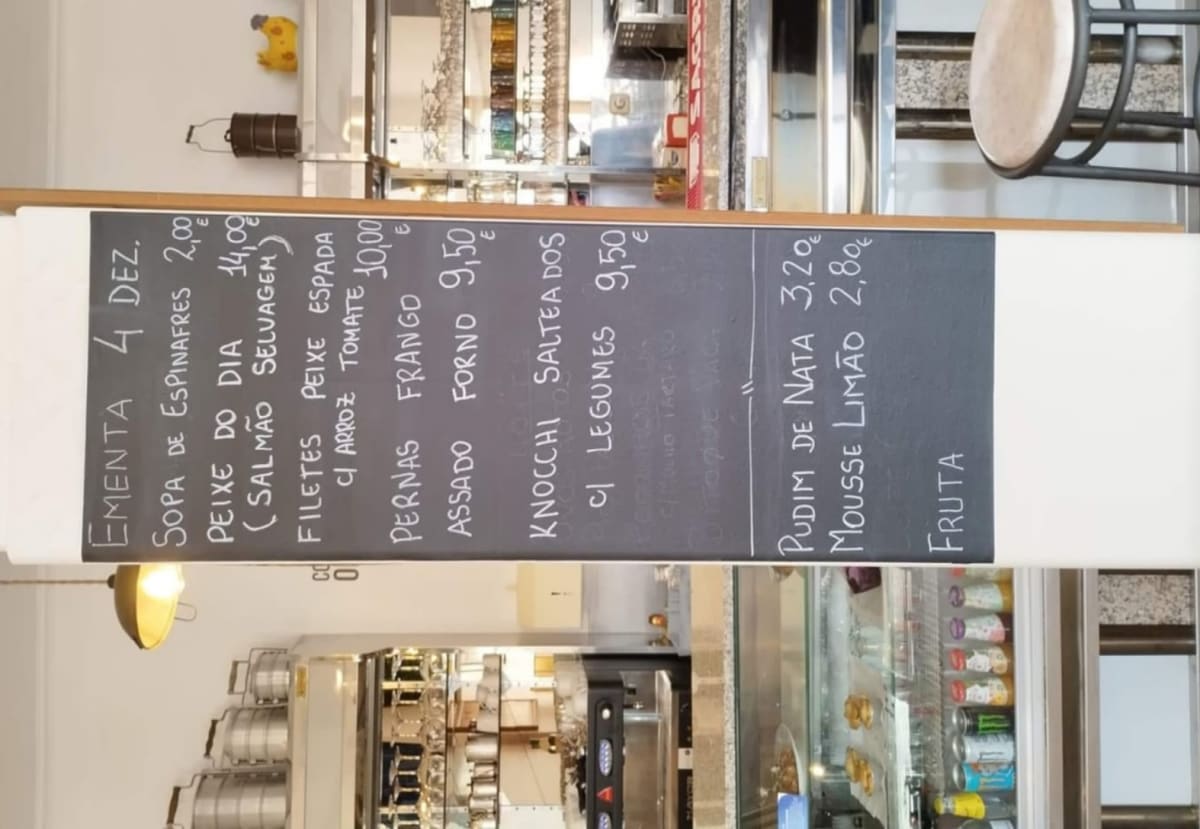 EMENTA 4 DEZ.
SOPA DE ESPINAFRES 2,00€
PEIXE DO DIA 14,00€
(SALMÃO SELVAGEM)
FILETES PEIXE ESPADA
c/ ARROZ TOMATE 10,00€
PERNAS FRANGO
ASSADO FORNO 9,50€
KNOCCHI SALTEADOS
c/ LEGUMES 9,50€
PUDIM DE NATA 3,20€
MOUSSE LIMÃO 2,80€
FRUTA